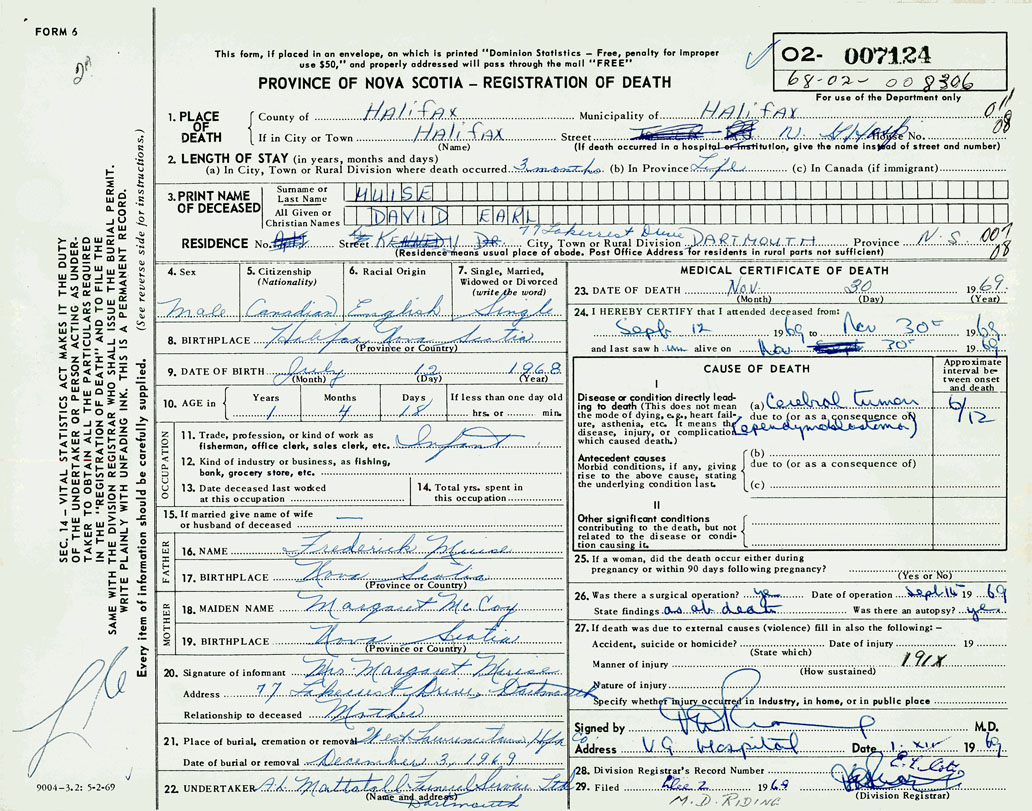 FORM 6
This form, if placed in an envelope, on which is printed "Dominion Statistics – Free, penalty for improper
use $50," and properly addressed will pass through the mail "FREE"
PROVINCE OF NOVA SCOTIA – REGISTRATION OF DEATH
O2- 007124
68-02-008306
For use of the Department only
1. PLACE OF DEATH
County of Halifax Municipality of Halifax 011
If in City or Town Halifax Street House No. 08
(Name) (If death occurred in a hospital or institution, give the name instead of street and number)
2. LENGTH OF STAY (in years, months and days)
(a) In City, Town or Rural Division where death occurred 3 months (b) In Province Life (c) In Canada (if immigrant)
3. PRINT NAME OF DECEASED
Surname or Last Name MUISE
All Given or Christian Names DAVID EARL
77 Lakecrest Drive
RESIDENCE No. Street KENNEDY DR. City, Town or Rural Division DARTMOUTH Province N.S. 007
(Residence means usual place of abode. Post Office Address for residents in rural parts not sufficient) 08
4. Sex 5. Citizenship (Nationality) 6. Racial Origin 7. Single, Married, Widowed or Divorced (write the word)
Male Canadian English Single
8. BIRTHPLACE Halifax Nova Scotia
(Province or Country)
9. DATE OF BIRTH July 12 1968
(Month) (Day) (Year)
10. AGE in Years Months Days If less than one day old
1 4 18 hrs. or min.
OCCUPATION
11. Trade, profession, or kind of work as fisherman, office clerk, sales clerk, etc. Infant
12. Kind of industry or business, as fishing, bank, grocery store, etc.
13. Date deceased last worked at this occupation
14. Total yrs. spent in this occupation
15. If married give name of wife or husband of deceased —
FATHER
16. NAME Frederick Muise
17. BIRTHPLACE Nova Scotia
(Province or Country)
MOTHER
18. MAIDEN NAME Margaret McCoy
19. BIRTHPLACE Nova Scotia
(Province or Country)
20. Signature of informant Mrs. Margaret Muise
Address 77 Lakecrest Drive, Dartmouth
Relationship to deceased Mother
21. Place of burial, cremation or removal West Lawrencetown Hfx Co
Date of burial or removal December 3, 1969
22. UNDERTAKER A.L. Mattatall Funeral Service Ltd
(Name and address) Dartmouth
MEDICAL CERTIFICATE OF DEATH
23. DATE OF DEATH Nov. 30 1969
(Month) (Day) (Year)
24. I HEREBY CERTIFY that I attended deceased from:
Sept 12 1969 to Nov 30 1969
and last saw him alive on Nov 30 1969
CAUSE OF DEATH
Approximate interval between onset and death
I
Disease or condition directly leading to death (This does not mean the mode of dying, e.g., heart failure, asthenia, etc. It means the disease, injury, or complication which caused death.)
(a) Cerebral tumor 6/12
due to (or as a consequence of)
(ependymoblastoma)
Antecedent causes
Morbid conditions, if any, giving rise to the above cause, stating the underlying condition last.
(b)
due to (or as a consequence of)
(c)
II
Other significant conditions
contributing to the death, but not related to the disease or condition causing it.
25. If a woman, did the death occur either during pregnancy or within 90 days following pregnancy?
(Yes or No)
26. Was there a surgical operation? yes Date of operation Sept. 15 1969
State findings as at death Was there an autopsy? yes
27. If death was due to external causes (violence) fill in also the following: –
Accident, suicide or homicide? Date of injury 19
(State which)
Manner of injury 191X
(How sustained)
Nature of injury
Specify whether injury occurred in industry, in home, or in public place
Signed by M.D.
Address VG Hospital Date 1. XII 1969
28. Division Registrar's Record Number
29. Filed Dec 2 1969
(Division Registrar)
M.D. RIDING
SEC. 14 – VITAL STATISTICS ACT MAKES IT THE DUTY
OF THE UNDERTAKER OR PERSON ACTING AS UNDER-
TAKER TO OBTAIN ALL THE PARTICULARS REQUIRED
IN THE "REGISTRATION OF DEATH" AND TO FILE THE
SAME WITH THE DIVISION REGISTRAR WHO SHALL ISSUE THE BURIAL PERMIT.
WRITE PLAINLY WITH UNFADING INK. THIS IS A PERMANENT RECORD.
Every item of information should be carefully supplied. (See reverse side for instructions.)
9004–3.2: 5-2-69